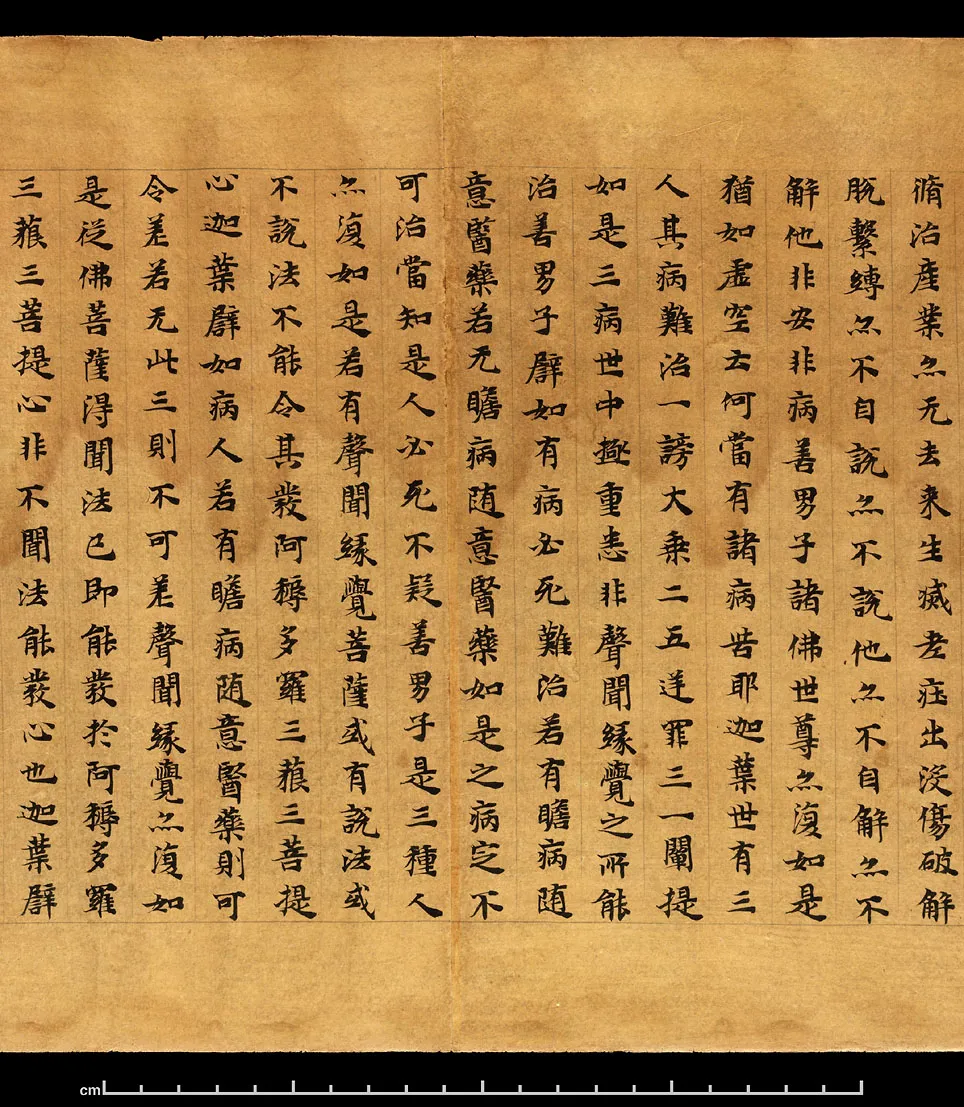 脩治產業亦无去来生滅老壯出没傷破解
脫繫縛亦不自說亦不說他亦不自解亦不
解他非安非病善男子諸佛世尊亦復如是
猶如虛空云何當有諸病苦耶迦葉世有三
人其病難治一謗大乘二五逆罪三一闡提
如是三病世中極重悉非聲聞緣覺之所能
治善男子譬如有病必死難治若有瞻病随
意醫藥若无瞻病随意醫藥如是之病定不
可治當知是人必死不疑善男子是三種人
亦復如是若有聲聞緣覺菩薩或有說法或
不說法不能令其發阿耨多羅三藐三菩提
心迦葉譬如病人若有瞻病随意醫藥則可
令差若无此三則不可差聲聞緣覺亦復如
是從佛菩薩得聞法已即能發於阿耨多羅
三藐三菩提心非不聞法能發心也迦葉譬
cm